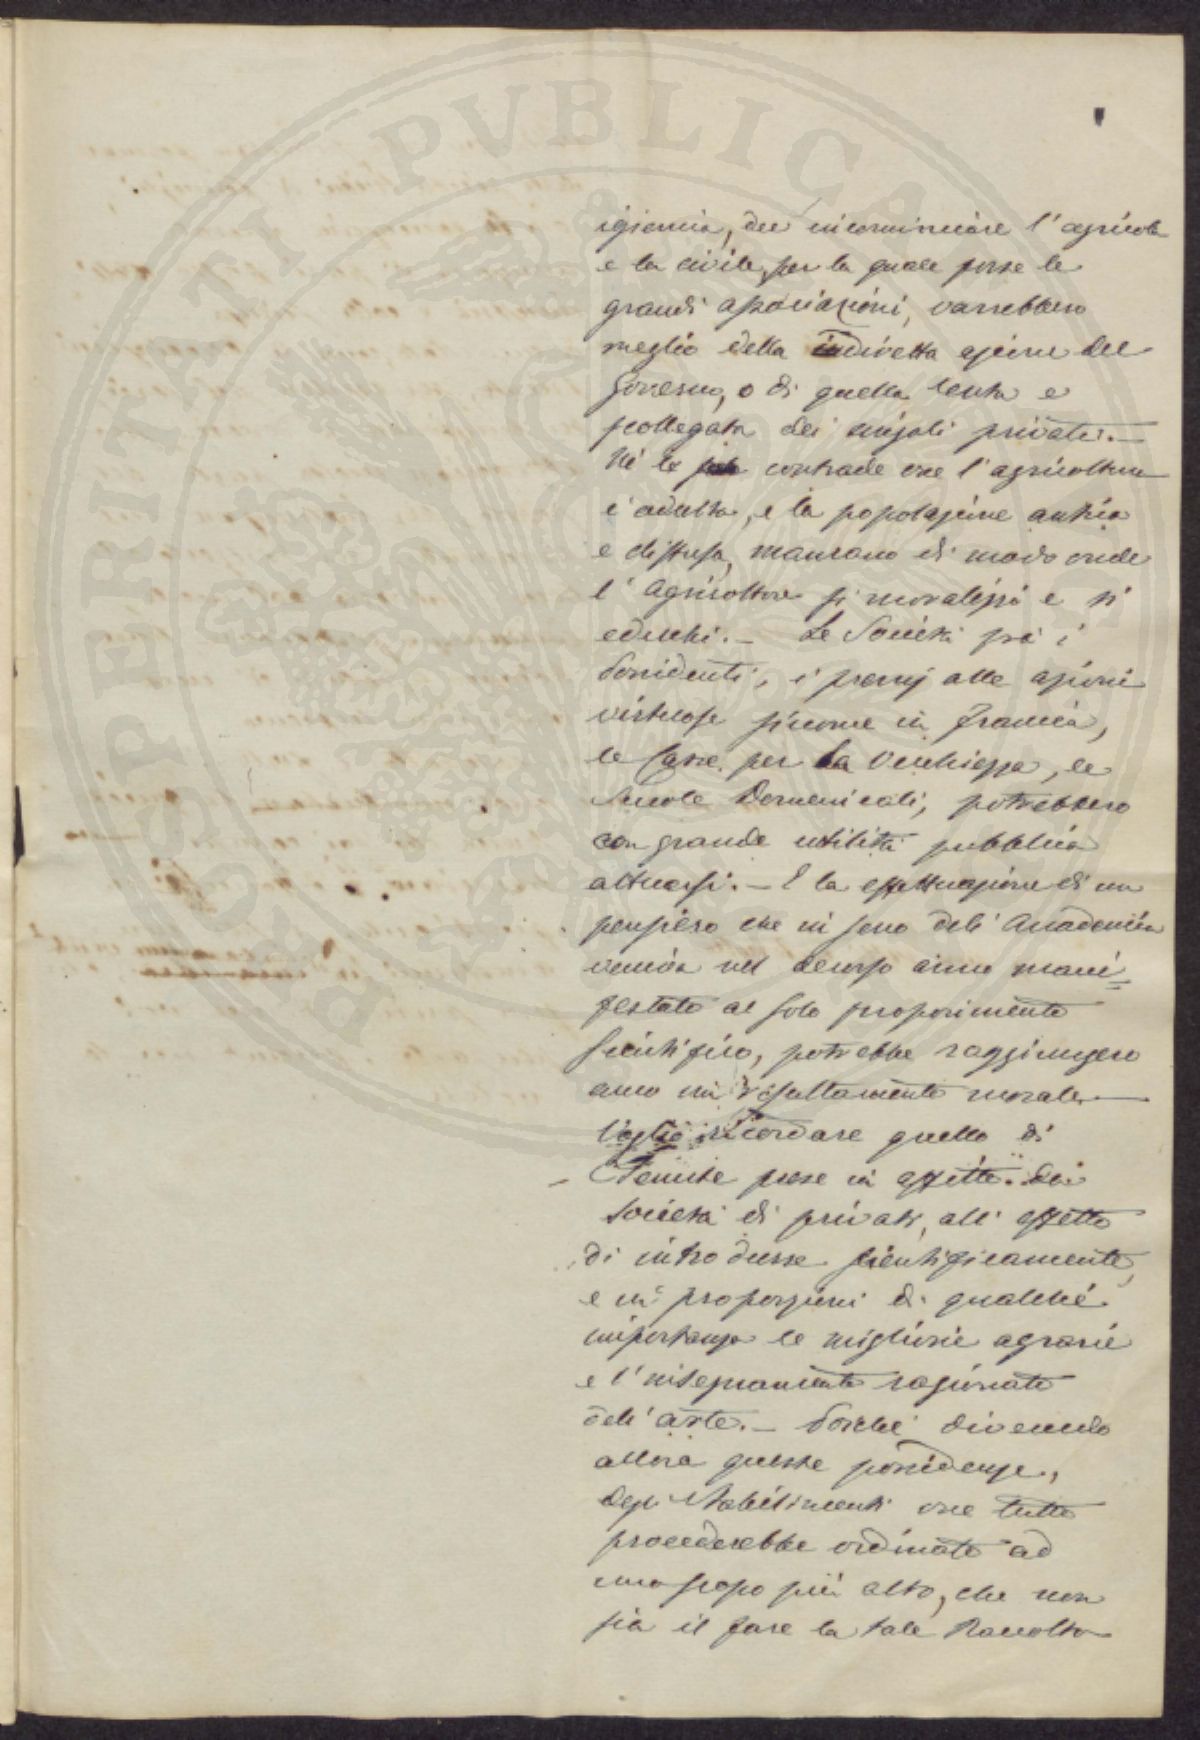 PROSPERITATI PUBLICAE
igienica, dee incominciare l'agricola
e la civile, per la quale forse le
grandi associazioni, varrebbero
meglio della indiretta azione del
Governo, o di quella lenta e
scollegata dei singoli privati. —
Nè le contrade ove l'agricoltura
è adulta, e la popolazione antica
e distesa, mancano di modo onde
l'Agricoltore si moralizzi e si
educhi. — Le Società fra i
Possidenti, i premj alle azioni
virtuose siccome in Francia,
le Casse per la Vecchiezza, le
Scuole Domenicali, potrebbero
con grande utilità pubblica
attuarsi. — E la effettuazione di un
pensiero che in seno dell'Accademia
veniva nel decorso anno mani=
festato al solo proponimento
scientifico, potrebbe raggiungere
anco un risultamento morale. —
Voglio ricordare quello di
Tenute prese in affitto da
Società di privati, all'effetto
di introdurre scientificamente,
e in proporzioni di qualche
importanza le migliorie agrarie
e l'insegnamento ragionato
dell'arte. — Poichè divenendo
allora queste possidenze,
degli Stabilimenti ove tutto
procederebbe ordinato ad
uno scopo più alto, che non
sia il fare la tale Raccolta